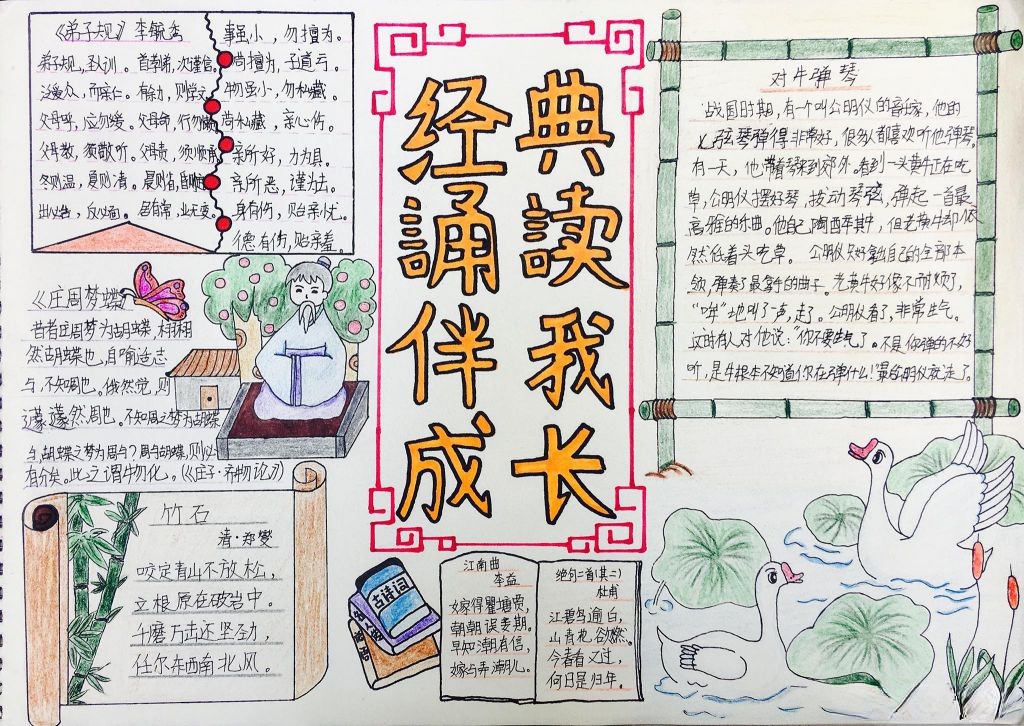 《弟子规》李毓秀
弟子规,圣人训。首孝弟,次谨信。
泛爱众,而亲仁。有余力,则学文。
父母呼,应勿缓。父母命,行勿懒。
父母教,须敬听。父母责,须顺承。
冬则温,夏则清。晨则省,昏则定。
出必告,反必面。居有常,业无变。
事虽小,勿擅为。
苟擅为,子道亏。
物虽小,勿私藏。
苟私藏,亲心伤。
亲所好,力为具。
亲所恶,谨为去。
身有伤,贻亲忧。
德有伤,贻亲羞。
《庄周梦蝶》
昔者庄周梦为胡蝶,栩栩
然胡蝶也,自喻适志
与,不知周也。俄然觉,则
蘧蘧然周也。不知周之梦为胡蝶
与,胡蝶之梦为周与?周与胡蝶,则必
有分矣。此之谓物化。(《庄子·齐物论》)
竹石
清·郑燮
咬定青山不放松,
立根原在破岩中。
千磨万击还坚劲,
任尔东西南北风。
经典
诵读
伴我
成长
古诗词
江南曲
李益
嫁得瞿塘贾,
朝朝误妾期。
早知潮有信,
嫁与弄潮儿。
绝句二首(其二)
杜甫
江碧鸟逾白,
山青花欲燃。
今春看又过,
何日是归年。
对牛弹琴
战国时期,有一个叫公明仪的音乐家,他的
七弦琴弹得非常好,很多人都喜欢听他弹琴。
有一天,他带着琴来到郊外,看到一头黄牛正在吃
草,公明仪摆好琴,拨动琴弦,弹起一首最
高雅的乐曲。他自己陶醉其中,但老黄牛却依
然低着头吃草。公明仪只好拿出自己的全部本
领,弹奏了最拿手的曲子。老黄牛好像不耐烦了,
"哞"地叫了一声,走了。公明仪看了,非常生气。
这时有人对他说:"你不要生气了。不是你弹的不好
听,是牛根本不知道你在弹什么!"最后公明仪就走了。